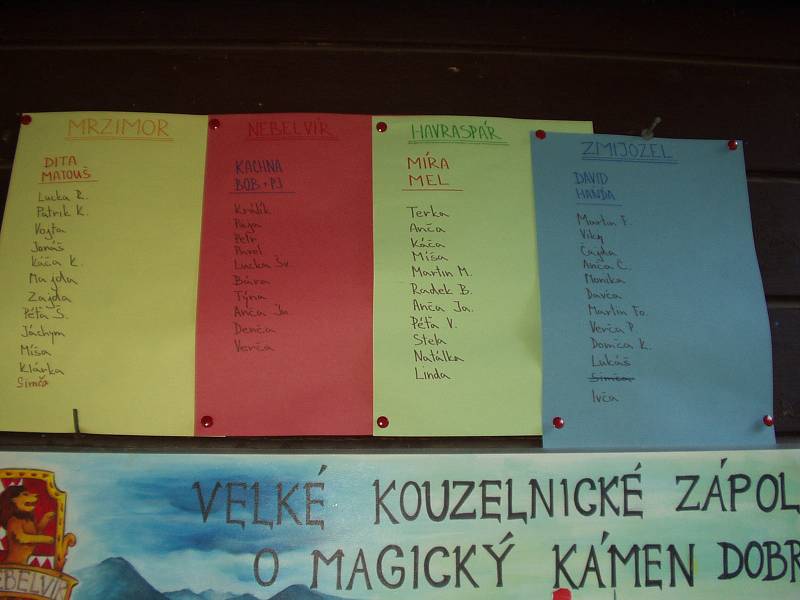 MRZIMOR
DITA
MATOUŠ
Lucka R.
Patrik K.
Vojta
Jonáš
Káča K.
Majda
Zajda
Péťa Š.
Jáchym
Míša
Klárka
Simča
NEBELVÍR
KACHNA
BOB + PJ
Králík
Pája
Petr
Pavel
Lucka Šv.
Bára
Týna
Anča Ju.
Denča
Verča
HAVRASPÁR
MÍRA
MEL
Terka
Anča
Káča
Míša
Martin M.
Radek B.
Anča Ja.
Péťa V.
Stela
Natálka
Linda
ZMIJOZEL
DAVID
HANDA
Martin F.
Viky
Čajda
Anča Č.
Monika
Davča
Martin Fo.
Verča P.
Domča K.
Lukáš
Simča
Ivča
VELKÉ KOUZELNICKÉ ZÁPOL
O MAGICKÝ KÁMEN DOBR
EBELVÍR